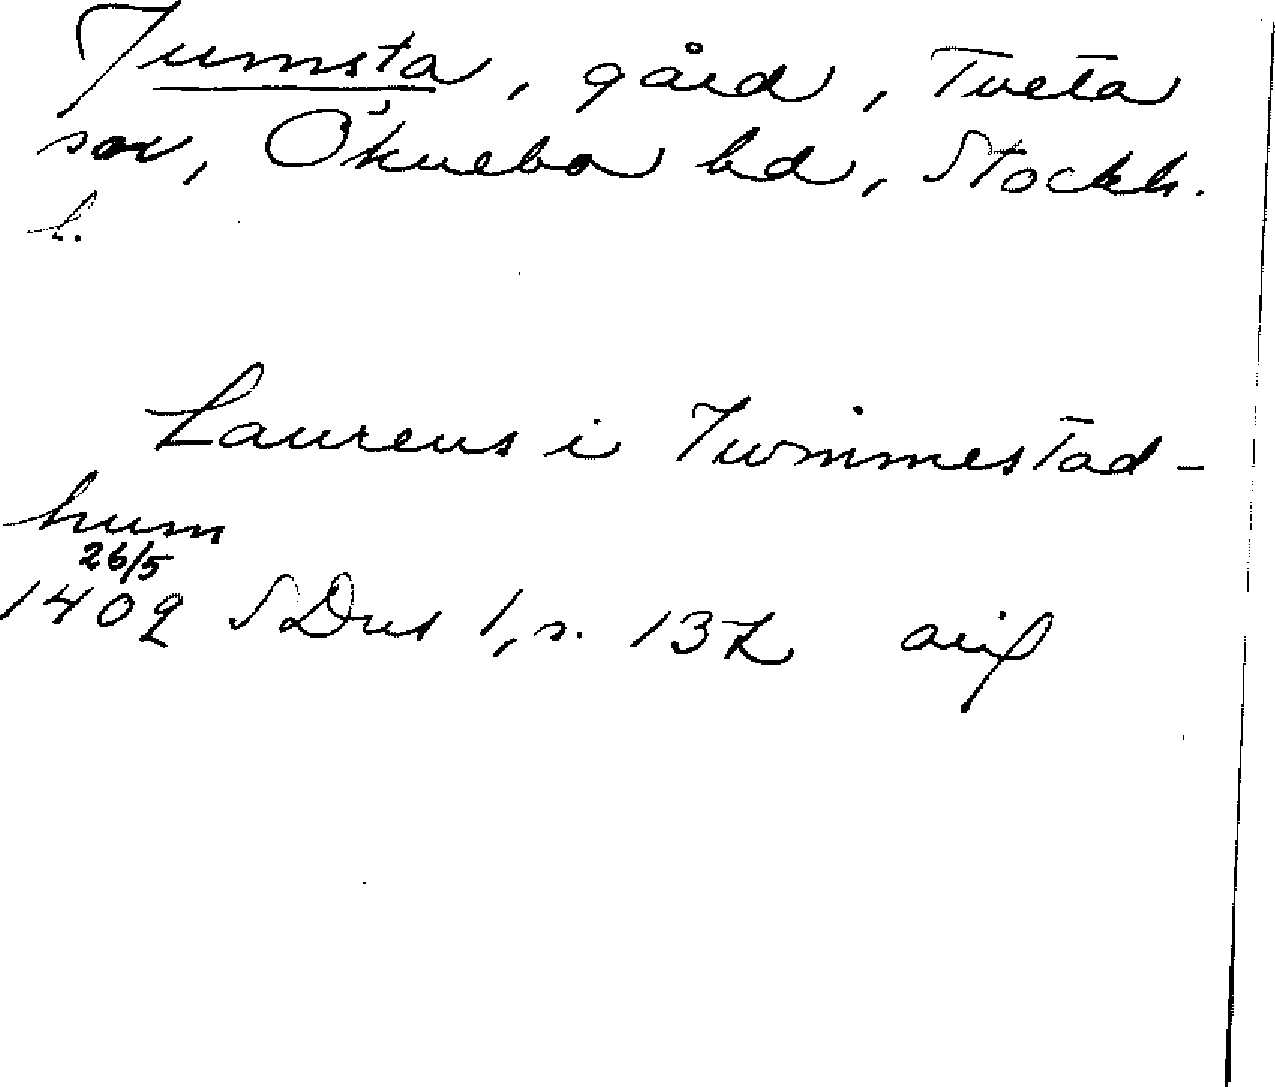 Tumsta, gård, Tveta
sn, Öknebo hd, Stockh.
l.
Laurens i Twmmestad-
hum
26/5
1402 SDns 1, s. 132 avs